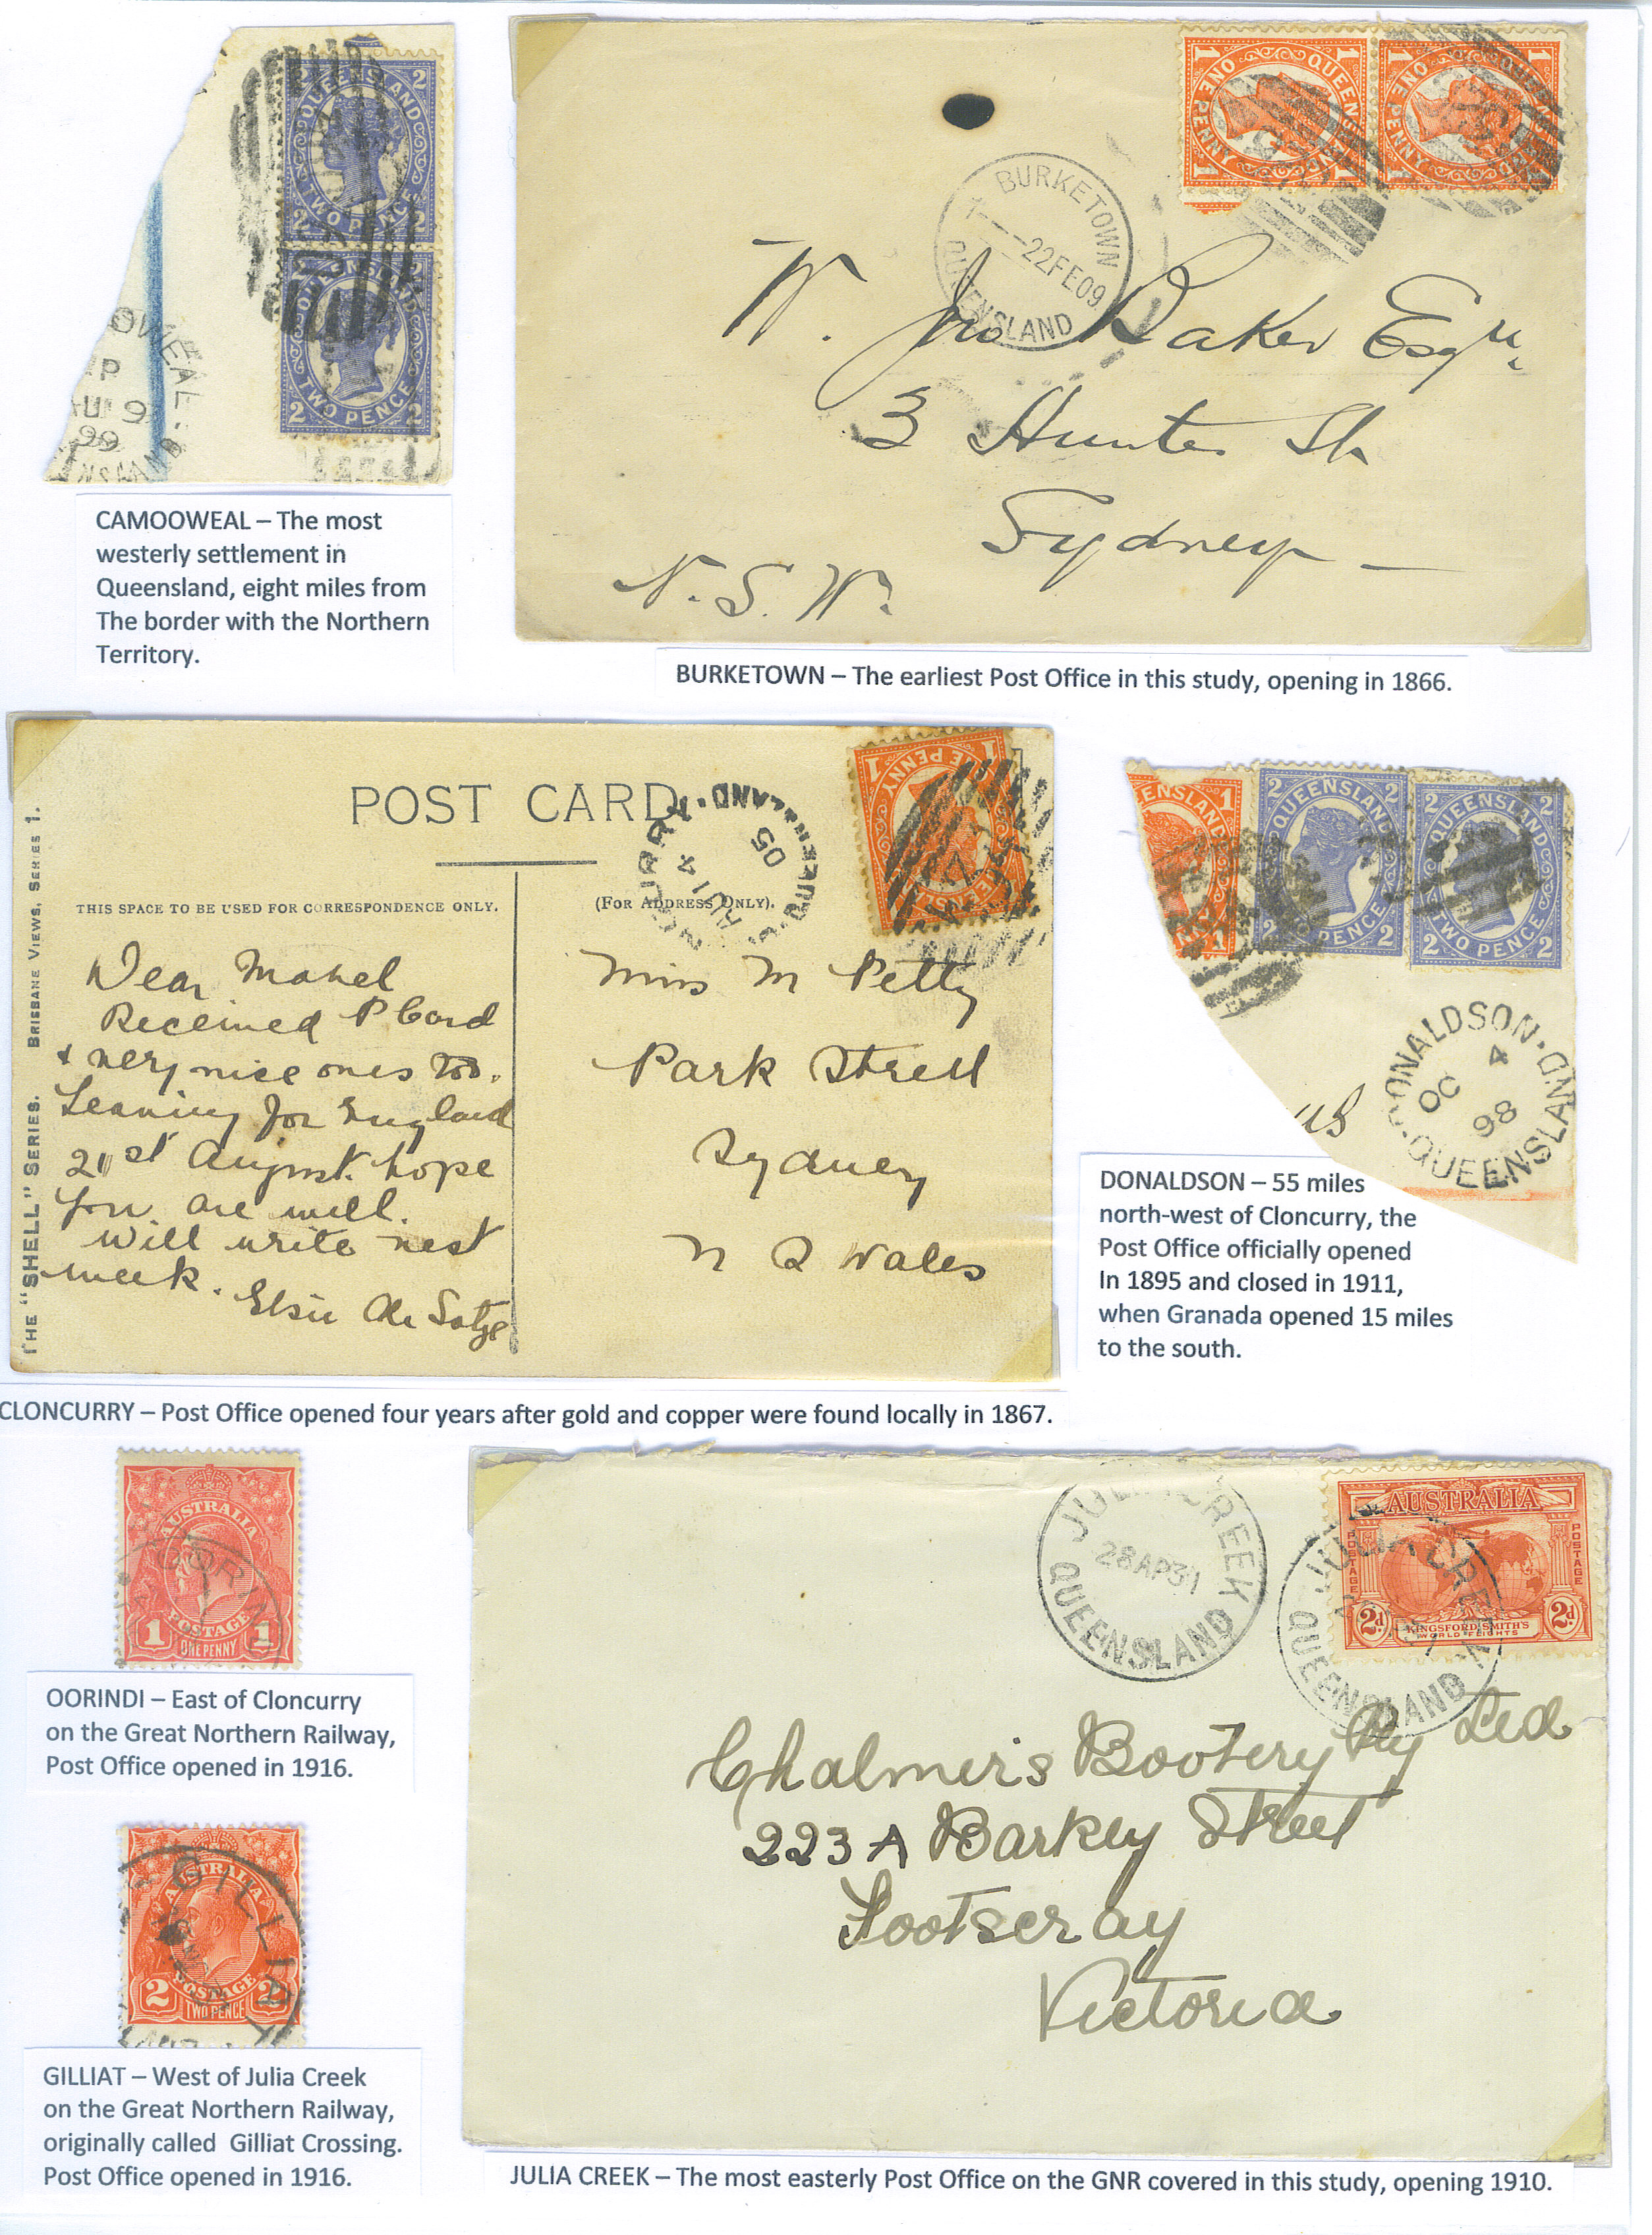 QUEENSLAND
2 2
TWO PENCE
2 2
QUEENSLAND
TWO PENCE
2 2
OWEAL
P
AU 9
99
CAMOOWEAL – The most
westerly settlement in
Queensland, eight miles from
The border with the Northern
Territory.
ONE PENNY
QUEEN
1 1
ONE PENNY
1
BURKETOWN
22FE09
QUEENSLAND
W. Jno Baker Esqr.
3 Hunter St.
Sydney –
N. S. W.
BURKETOWN – The earliest Post Office in this study, opening in 1866.
THE "SHELL" SERIES. BRISBANE VIEWS, SERIES 1.
POST CARD.
NCURRY
AU 14
05
QUEENSLAND
ONE PENNY
1 1
THIS SPACE TO BE USED FOR CORRESPONDENCE ONLY.
(FOR ADDRESS ONLY).
Dear Mabel
Received P Card
& very nice ones too.
Leaving for England
21st August. hope
you are well.
Will write next
week.
Elsie De Satge
Miss M Petty
Park Street
Sydney
N S Wales
CLONCURRY – Post Office opened four years after gold and copper were found locally in 1867.
ENSLAND
1
NNY
1
QUEENSLAND
2 2
PENCE
2 2
QUEENSLAND
2 2
TWO PENCE
2 2
DONALDSON
OC 4
98
QUEENSLAND
us
DONALDSON – 55 miles
north-west of Cloncurry, the
Post Office officially opened
In 1895 and closed in 1911,
when Granada opened 15 miles
to the south.
AUSTRALIA
POSTAGE
1 ONE PENNY 1
OORIN
OORINDI – East of Cloncurry
on the Great Northern Railway,
Post Office opened in 1916.
AUSTRALIA
POSTAGE
2 TWO PENCE 2
GILLIAT
GILLIAT – West of Julia Creek
on the Great Northern Railway,
originally called Gilliat Crossing.
Post Office opened in 1916.
JULIA CREEK
28AP31
QUEENSLAND
AUSTRALIA
POSTAGE
POSTAGE
2d. 2d.
KINGSFORD SMITH'S
WORLD FLIGHTS
JULIA CREEK
QUEENSLAND
Chalmers Bootery Pty Ltd
223 A Barkly Street
Footscray
Victoria
JULIA CREEK – The most easterly Post Office on the GNR covered in this study, opening 1910.